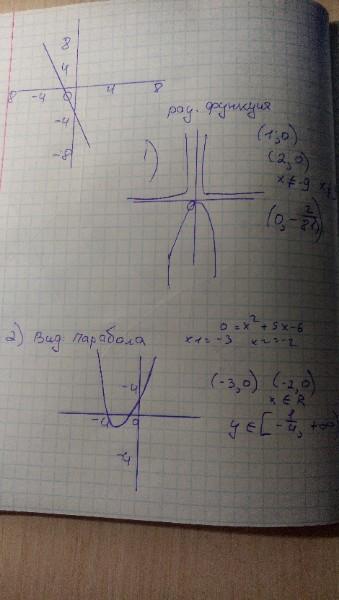 8
4
8 -4 0 4 8
-4
-8
рац. функция
1)
(1;0)
(2,0)
x ≠ -9
0
(0,-2/81)
2) Вид: парабола
0 = x² + 5x - 6
x1 = -3 x2 = -2
-4
(-3,0) (-2,0)
x ∈ R
-4 0
y ∈ [-1/4, +∞)
-4